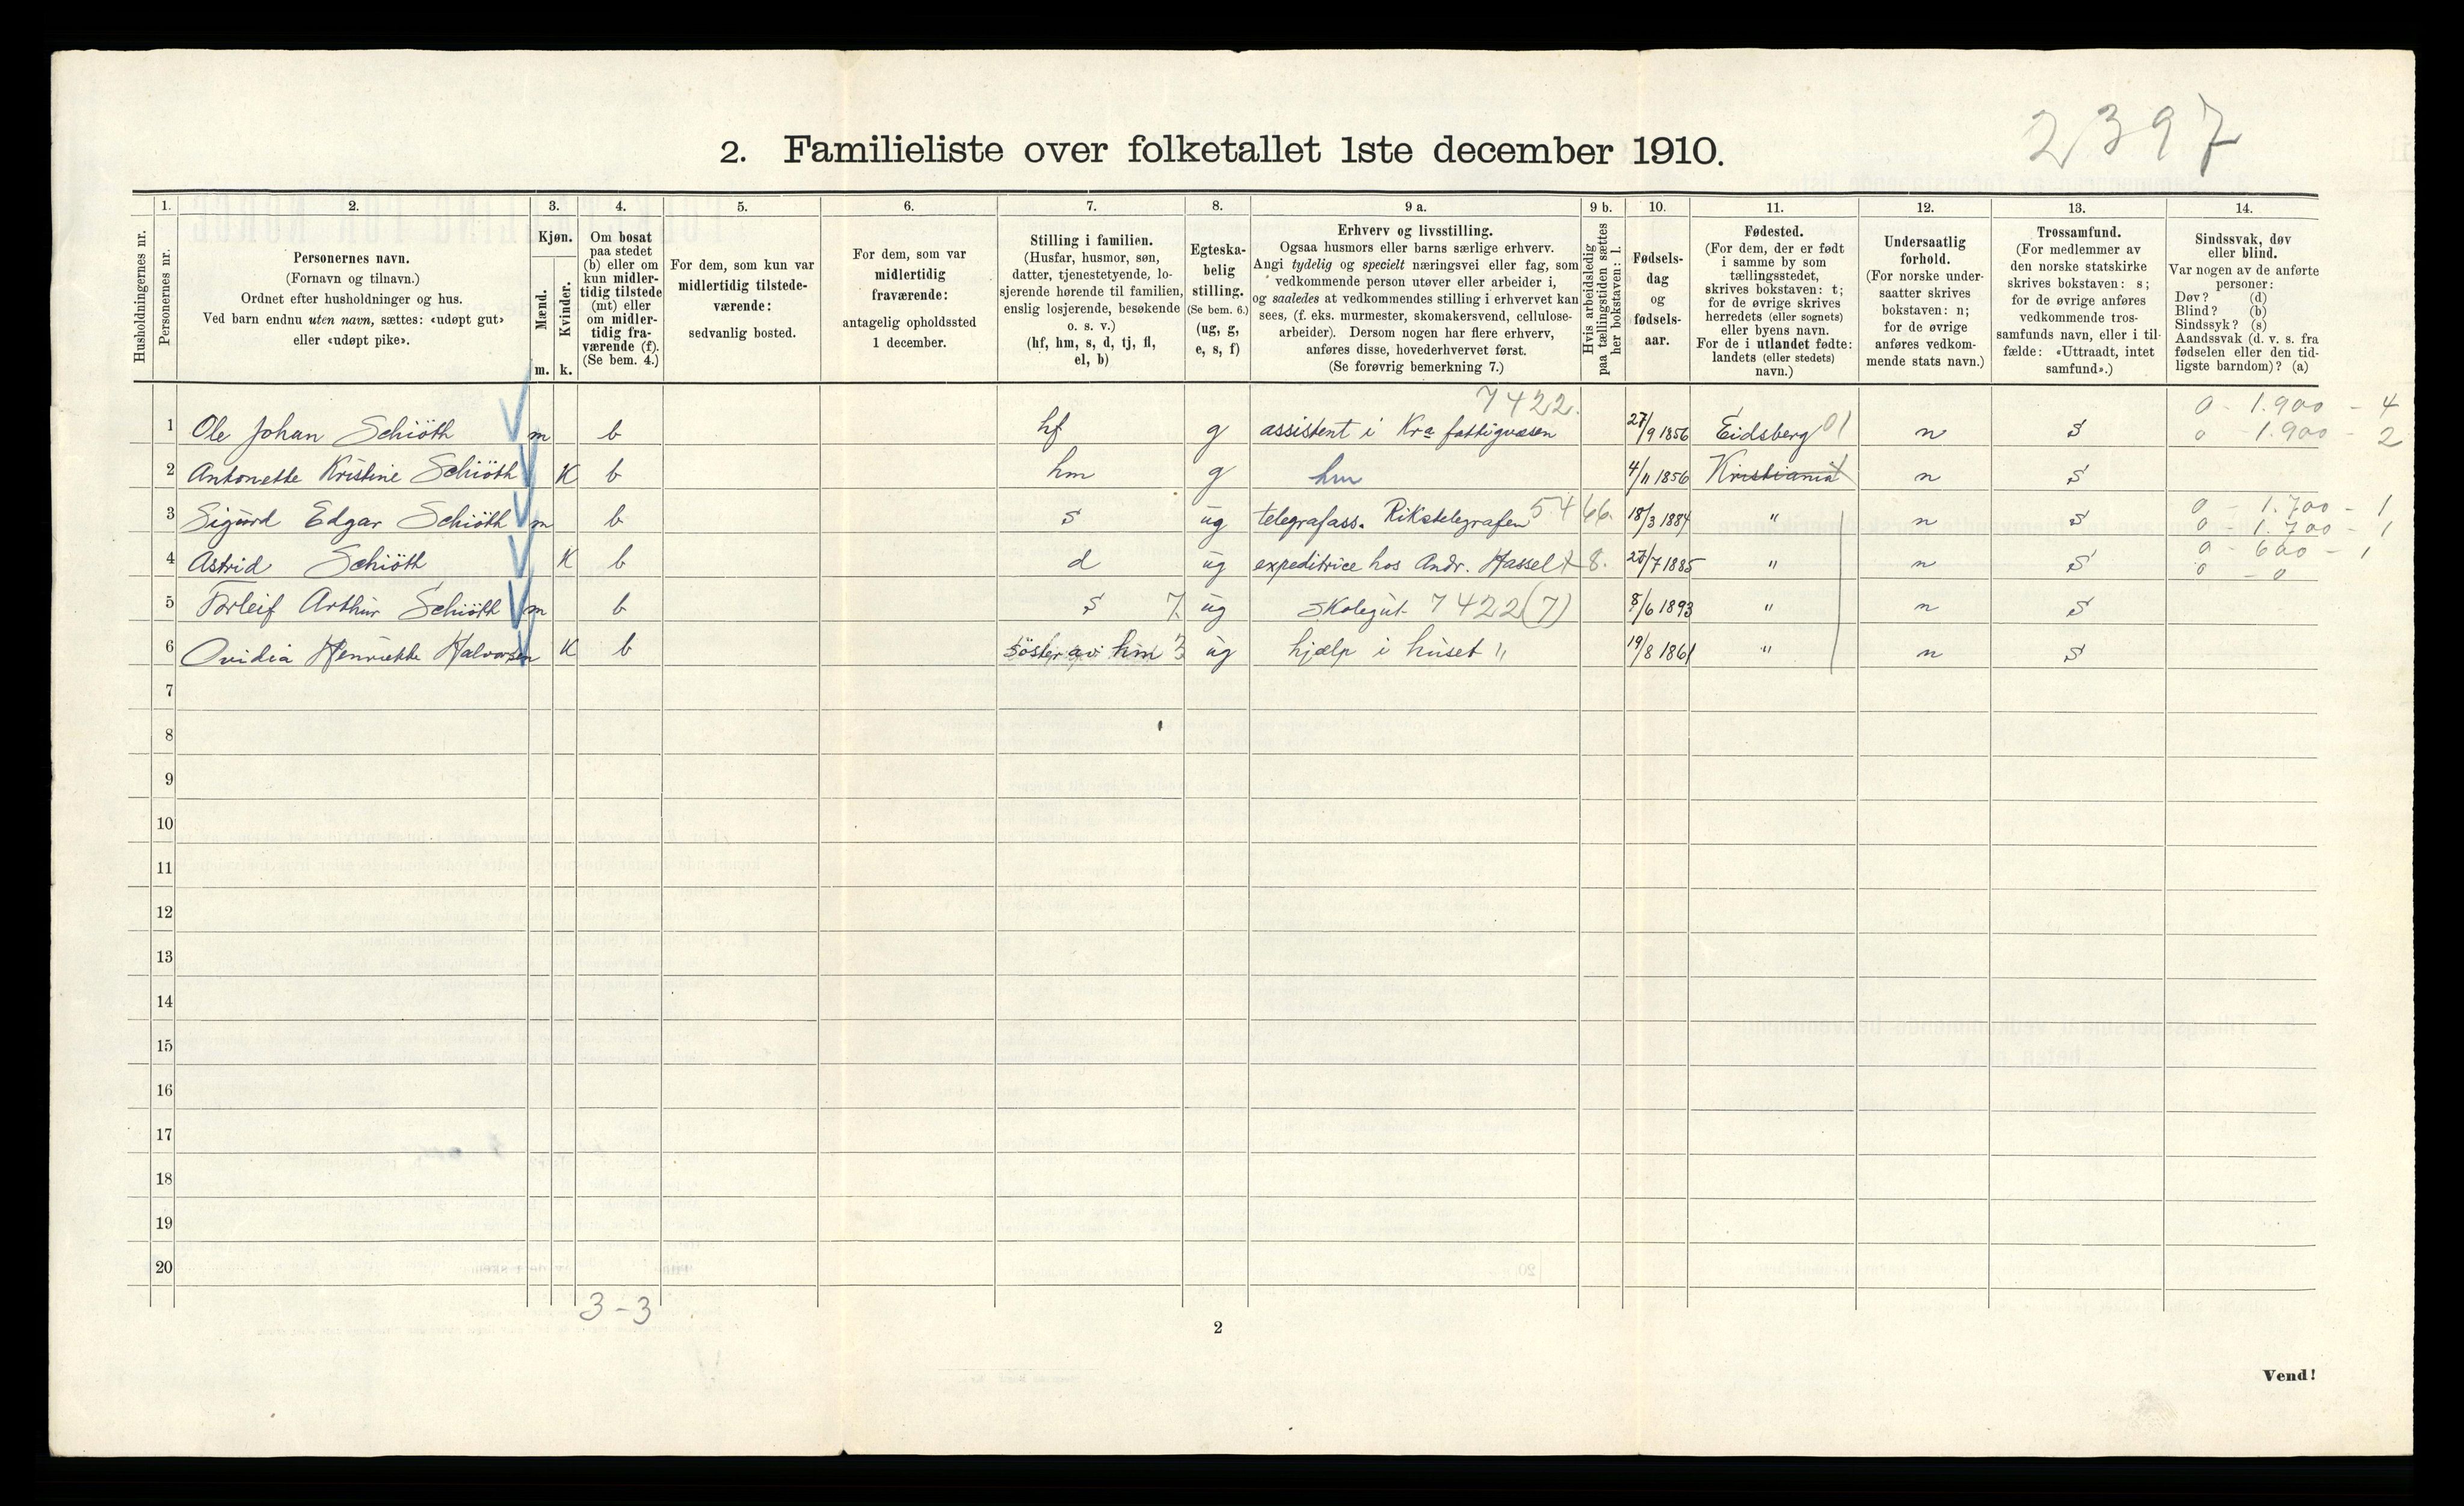 2397
2. Familieliste over folketallet 1ste december 1910.
Husholdningernes nr.
1. Personernes nr.
2. Personernes navn.
(Fornavn og tilnavn.)
Ordnet efter husholdninger og hus.
Ved barn endnu uten navn, sættes: «udøpt gut»
eller «udøpt pike».
3. Kjøn.
Mænd. m.
Kvinder. k.
4. Om bosat
paa stedet
(b) eller om
kun midler-
tidig tilstede
(mt) eller
om midler-
tidig fra-
værende (f).
(Se bem. 4.)
5. For dem, som kun var
midlertidig tilstede-
værende:
sedvanlig bosted.
6. For dem, som var
midlertidig
fraværende:
antagelig opholdssted
1 december.
7. Stilling i familien.
(Husfar, husmor, søn,
datter, tjenestetyende, lo-
sjerende hørende til familien,
enslig losjerende, besøkende
o. s. v.)
(hf, hm, s, d, tj, fl,
el, b)
8. Egteska-
belig
stilling.
(Se bem. 6.)
(ug, g,
e, s, f)
9 a. Erhverv og livsstilling.
Ogsaa husmors eller barns særlige erhverv.
Angi tydelig og specielt næringsvei eller fag, som
vedkommende person utøver eller arbeider i,
og saaledes at vedkommendes stilling i erhvervet kan
sees, (f. eks. murmester, skomakersvend, cellulose-
arbeider). Dersom nogen har flere erhverv,
anføres disse, hovederhvervet først.
(Se forøvrig bemerkning 7.)
9 b. Hvis arbeidsledig
paa tællingstiden sættes
her bokstaven: l.
10. Fødsels-
dag
og
fødsels-
aar.
11. Fødested.
(For dem, der er født
i samme by som
tællingsstedet,
skrives bokstaven: t;
for de øvrige skrives
herredets (eller sognets)
eller byens navn.
For de i utlandet fødte:
landets (eller stedets)
navn.)
12. Undersaatlig
forhold.
(For norske under-
saatter skrives
bokstaven: n;
for de øvrige
anføres vedkom-
mende stats navn.)
13. Trossamfund.
(For medlemmer av
den norske statskirke
skrives bokstaven: s;
for de øvrige anføres
vedkommende tros-
samfunds navn, eller i til-
fælde: «Uttraadt, intet
samfund».)
14. Sindssvak, døv
eller blind.
Var nogen av de anførte
personer:
Døv? (d)
Blind? (b)
Sindssyk? (s)
Aandssvak (d. v. s. fra
fødselen eller den tid-
ligste barndom)? (a)
7422. 0 - 1.900 - 4
1 Ole Johan Schiöth m b hf g assistent i Kra fattigvæsen 27/9 1856 Eidsberg 01 n S 0 - 1.900 - 2
2 Antonette Kristine Schiöth K b hm g hm 4/11 1856 Kristiania t n S
0 - 1.700 - 1
3 Sigurd Edgar Schiöth m b s ug telegrafass. Rikstelegrafen 5466. 18/3 1884 " n S 0 - 1.700 - 1
0 - 600 - 1
4 Astrid Schiöth K b d ug expeditrice hos Andr. Hassel 8. 27/7 1885 " n S 0 - 0
5 Torleif Arthur Schiöth m b S 7. ug skolegut 7422(7) 8/6 1893 " n S
6 Ovidia Henriette Halvorsen K b söster avi hm 3 ug hjælp i huset " 19/8 1861 " n S
7
8
9
10
11
12
13
14
15
16
17
18
19
20
3-3
2
Vend!